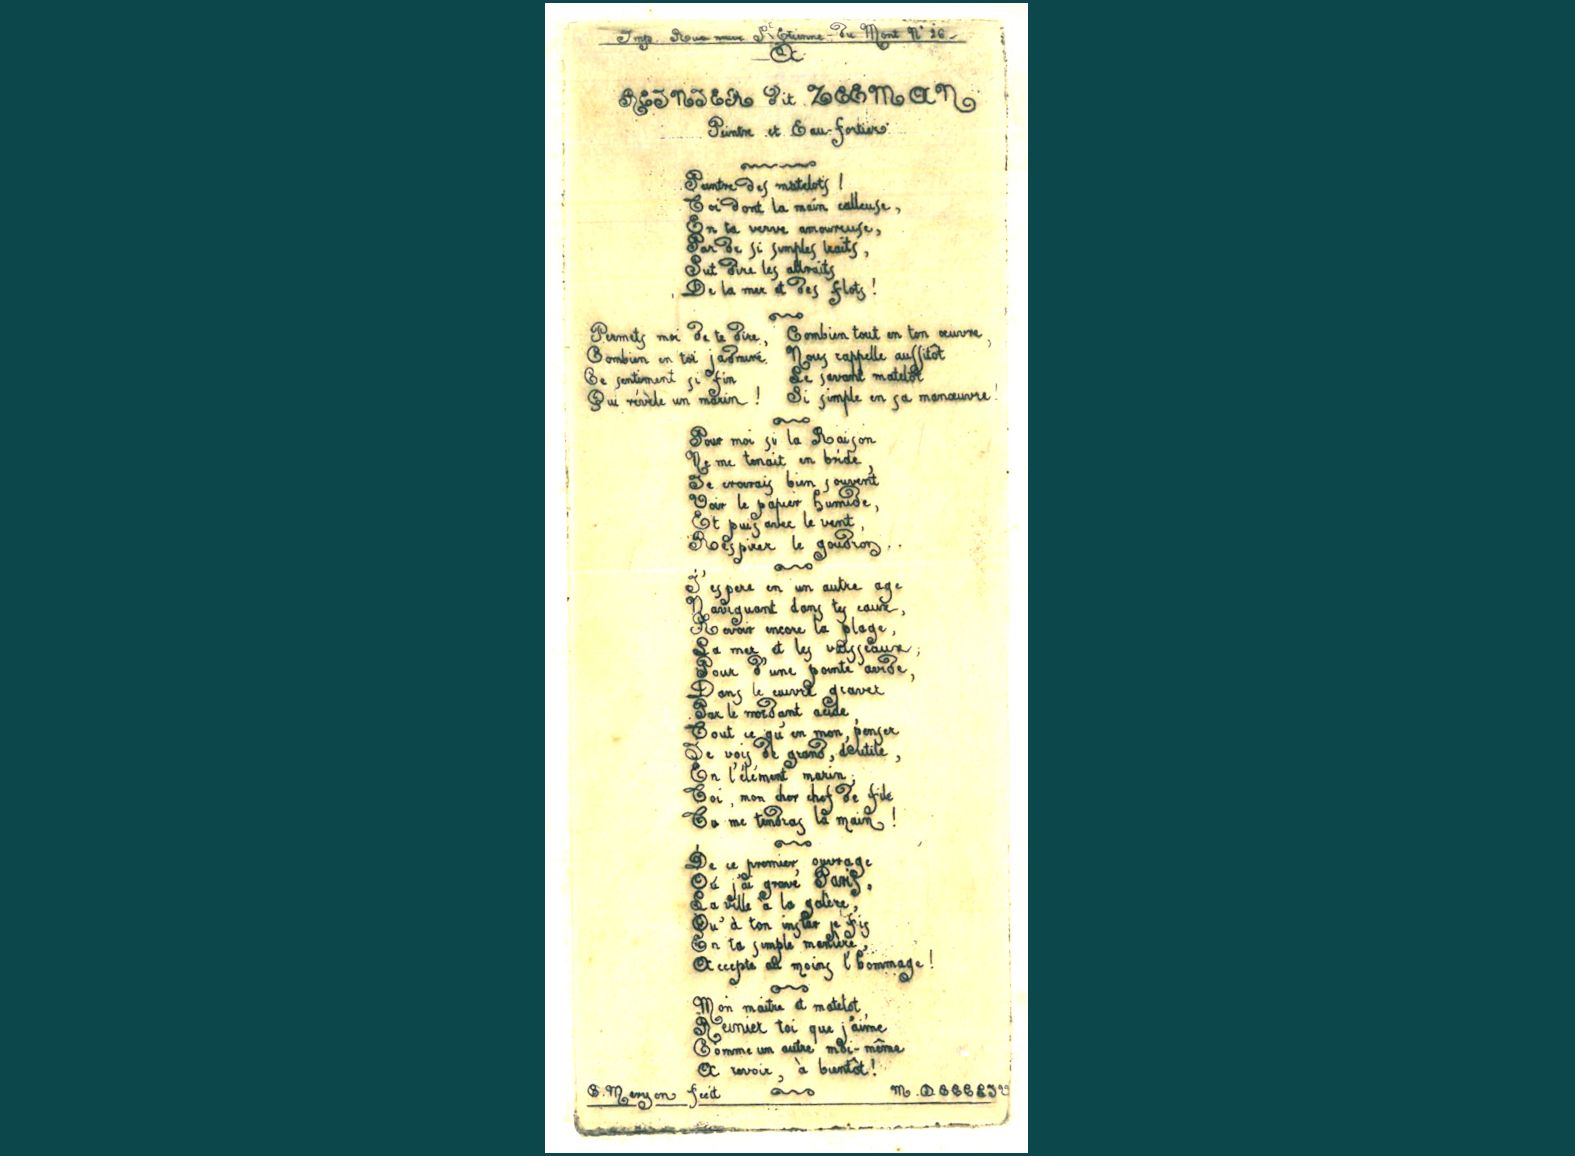 Imp. Rue neuve St Etienne-du Mont N° 26.
A
REINIER dit ZEEMAN
Peintre et Eau-fortier.
Peintre des matelots !
Toi dont la main calleuse,
En ta verve amoureuse,
Par de si simples traits,
Sut dire les attraits
De la mer et des flots !
Permets moi de te dire,
Combien en toi j'admire
Ce sentiment si fin
Qui révèle un marin !
Combien tout en ton œuvre,
Nous rappelle aussitôt
Le savant matelot
Si simple en sa manœuvre !
Pour moi si la Raison
Ne me tenait en bride,
Je croirais bien souvent
Voir le papier humide,
Et puis avec le vent,
Respirer le goudron..
J'espere en un autre age
Naviguant dans tes eaux,
Revoir encore la plage,
La mer et les vaisseaux ;
Pour d'une pointe avide,
Dans le cuivre graver
Par le mordant acide,
Tout ce qu'en mon penser
Je vois de grand, d'utile,
En l'élément marin ;
Toi, mon cher chef de file
Tu me tendras la main !
De ce premier ouvrage
Où j'ai gravé Paris,
La ville à la galère,
Qu'à ton instar je fis
En ta simple manière,
Accepte au moins l'hommage !
Mon maitre et matelot,
Reinier toi que j'aime
Comme un autre moi-même
A revoir, à bientôt !
C. Meryon fecit
M.DCCCLIV